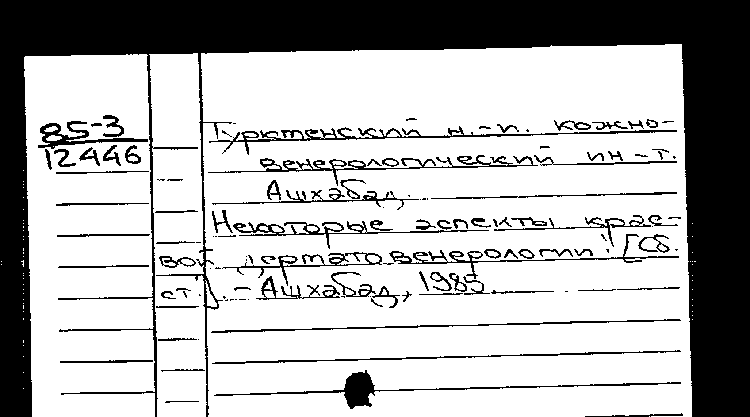 85-3
12446
Туркменский н.-и. кожно-
венерологический ин-т.
Ашхабад.
Некоторые аспекты крае-
вой дерматовенерологии: [Сб.
ст.]. - Ашхабад, 1985.